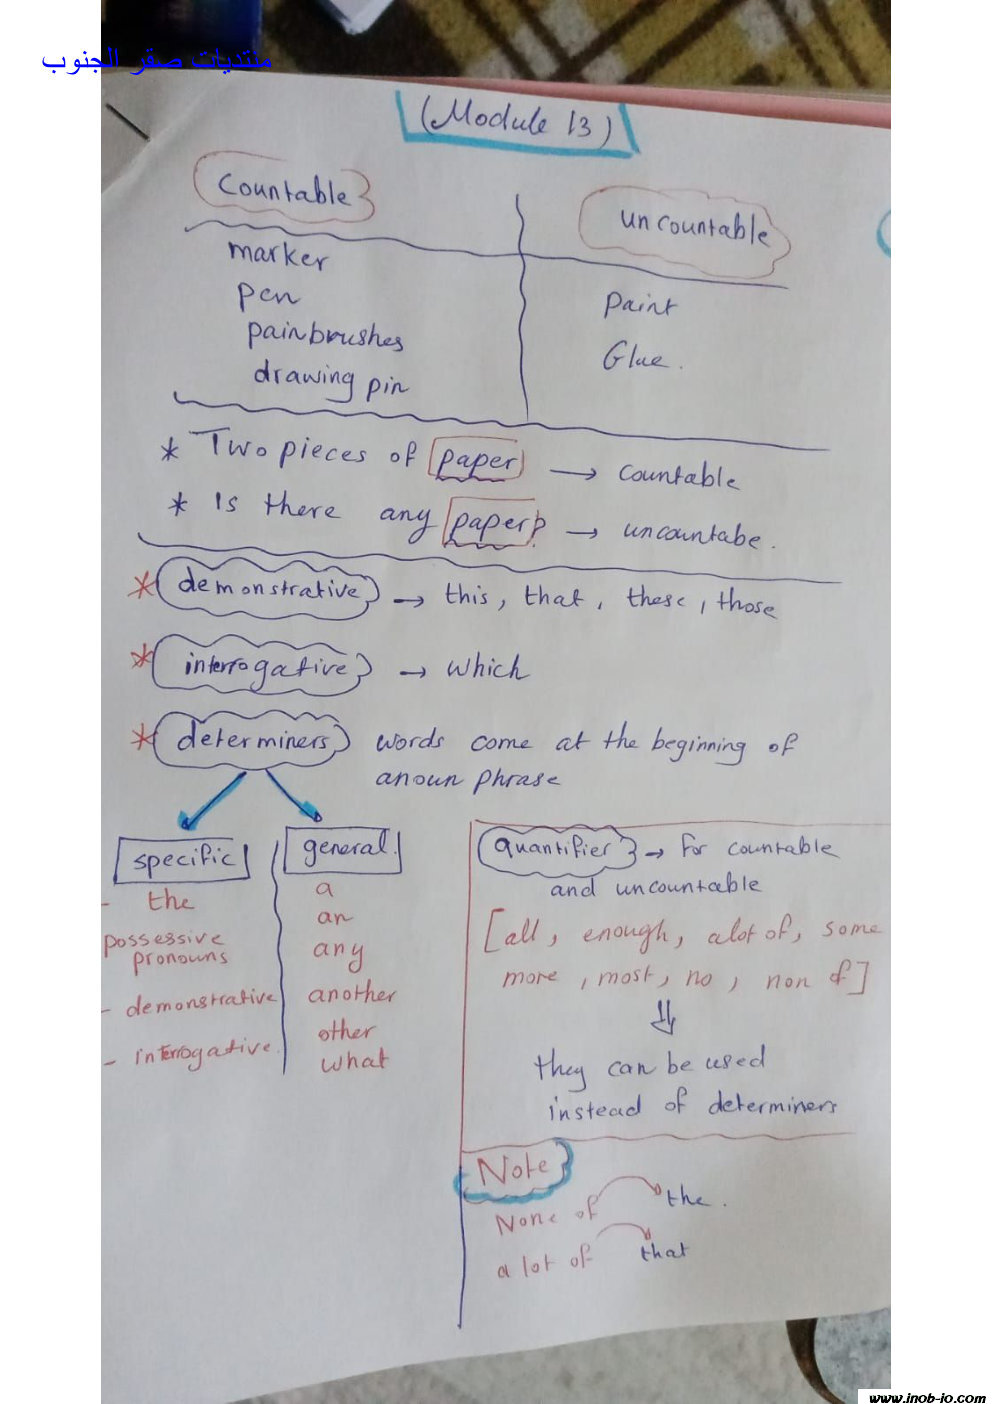 منتديات صقر الجنوب
(Module 13)
Countable
uncountable
marker
pen
painbrushes
drawing pin
Paint
Glue.
* Two pieces of paper → countable
* Is there any paper? → uncountabe.
* demonstrative → this, that, these, those
* interrogative → which
* determiners words come at the beginning of
anoun phrase
specific
- the
possessive
pronouns
- demonstrative
- interrogative.
general.
a
an
any
another
other
what
quantifier → for countable
and uncountable
[all, enough, alot of, some
more, most, no, non of]
they can be used
instead of determiners
Note
None of the.
a lot of that
www.jnob-jo.com